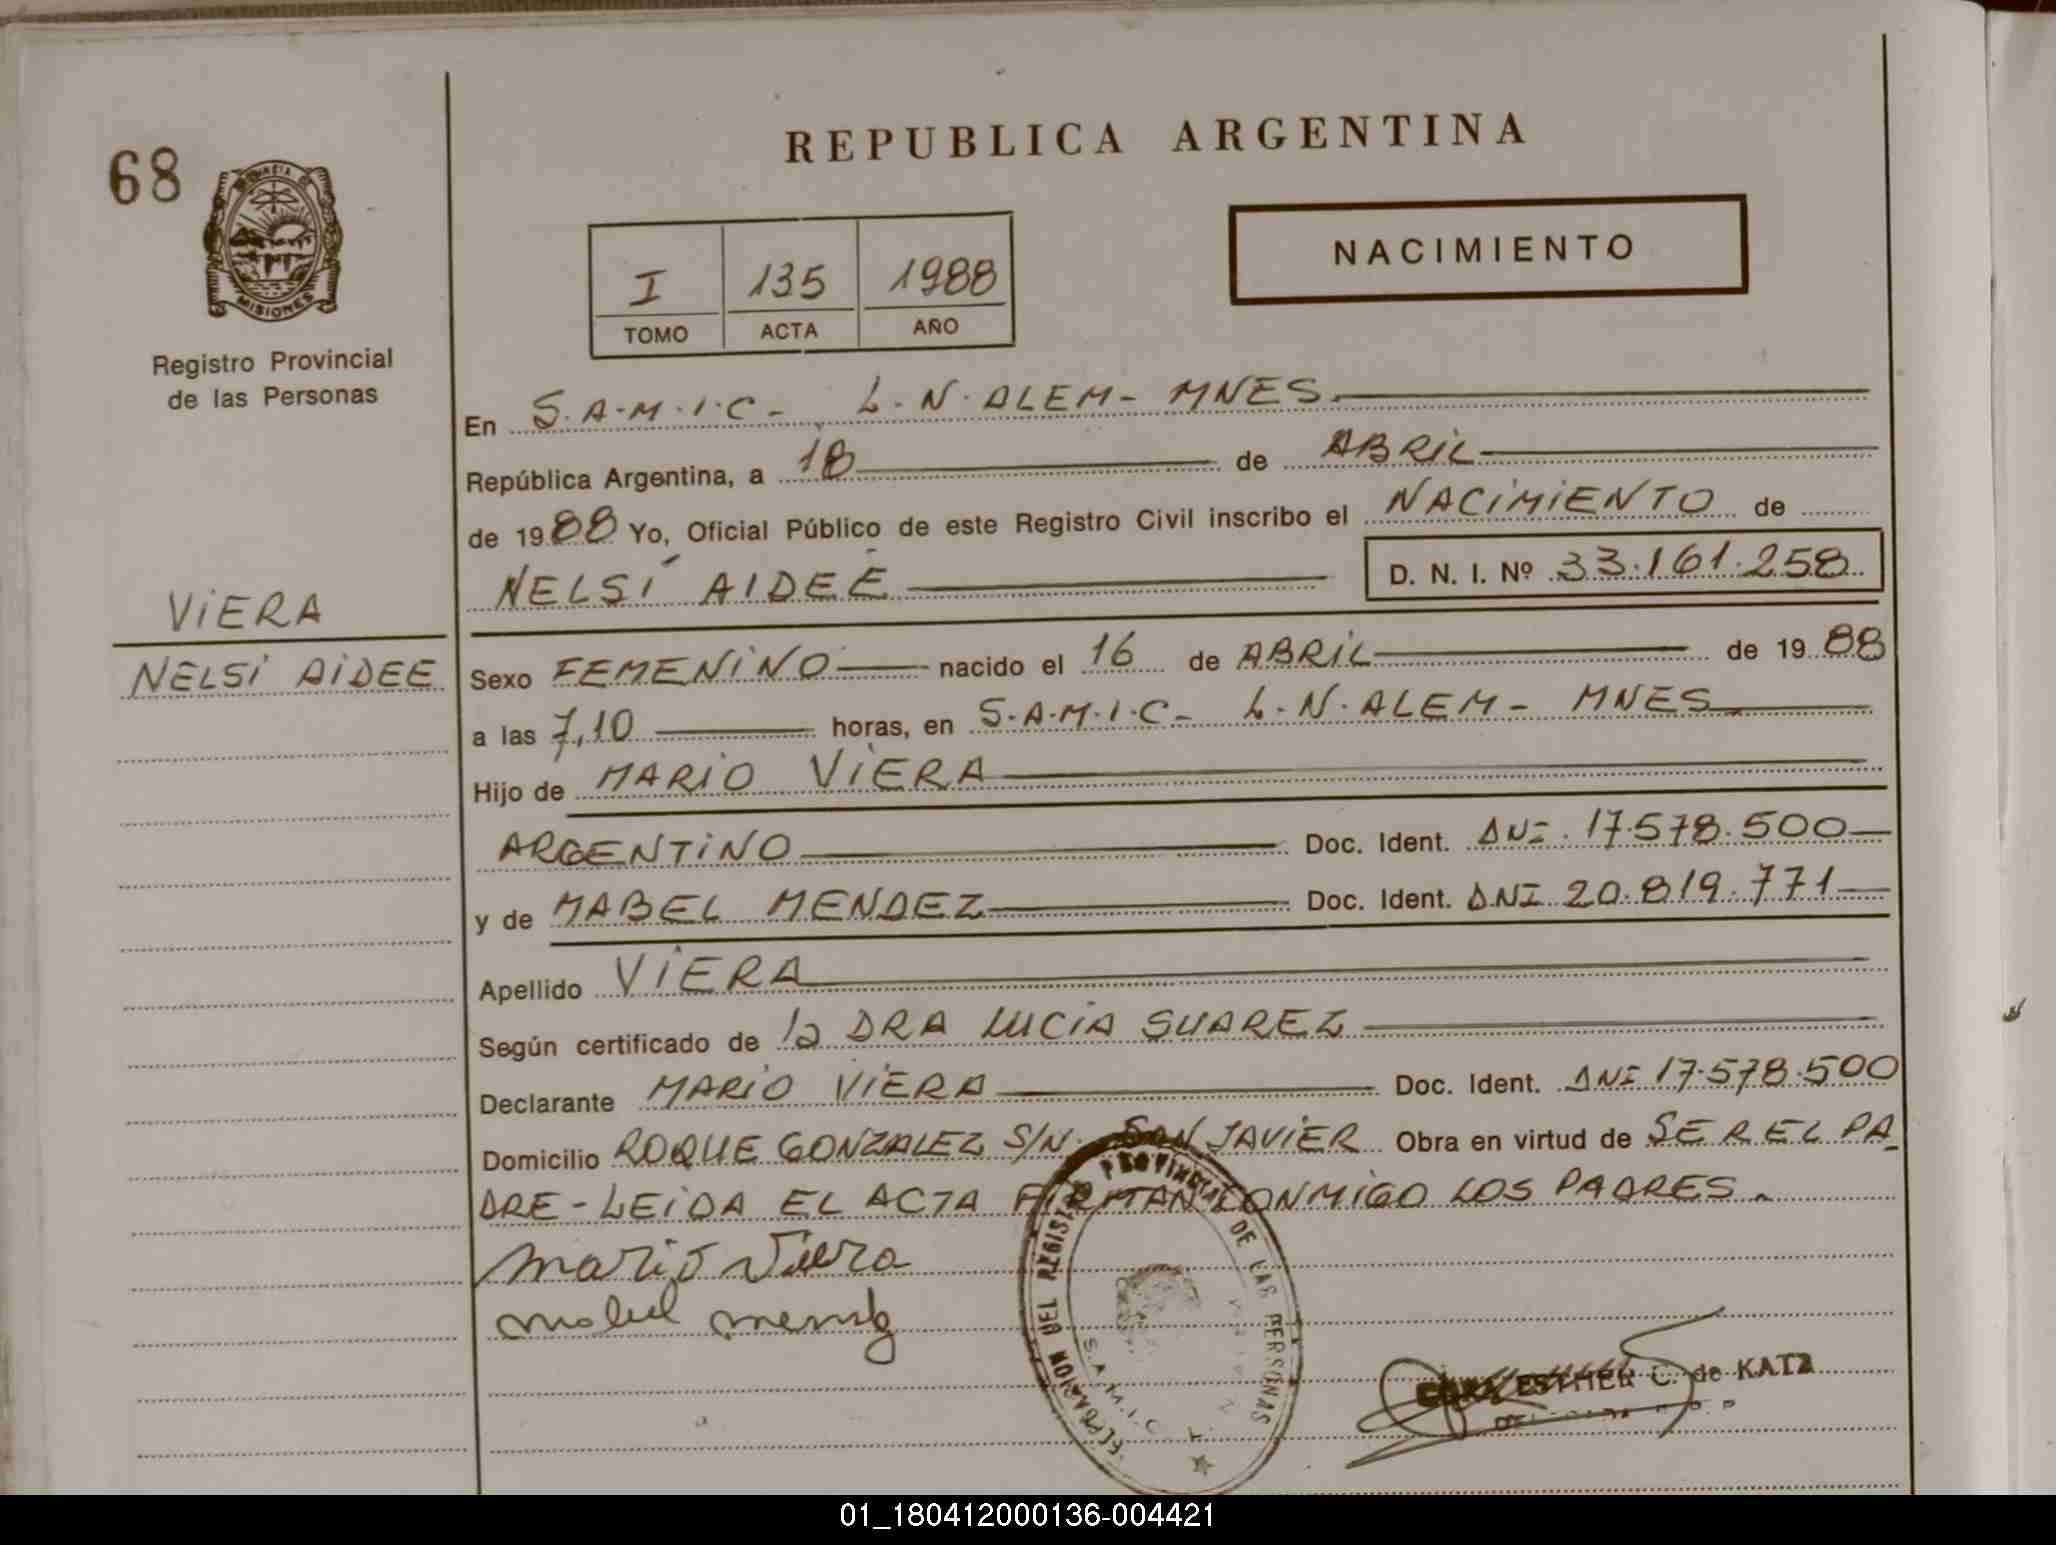 68
REPUBLICA ARGENTINA
NACIMIENTO
I 135 1988
TOMO ACTA AÑO
MISIONES
Registro Provincial
de las Personas
En S.A.M.I.C - L.N.ALEM - MNES.
República Argentina, a 18 de ABRIL
de 1988 Yo, Oficial Público de este Registro Civil inscribo el NACIMIENTO de
NELSI AIDEE D. N. I. Nº 33.161.258
VIERA
NELSI AIDEE
Sexo FEMENINO nacido el 16 de ABRIL de 1988
a las 7,10 horas, en S.A.M.I.C - L.N.ALEM - MNES
Hijo de MARIO VIERA
ARGENTINO Doc. Ident. DNI. 17.578.500
y de MABEL MENDEZ Doc. Ident. DNI 20.819.771
Apellido VIERA
Según certificado de la DRA LUCIA SUAREZ
Declarante MARIO VIERA Doc. Ident. DNI 17.578.500
Domicilio ROQUE GONZALEZ S/N. SAN JAVIER Obra en virtud de SER EL PA_
DRE - LEIDA EL ACTA FIRMAN CONMIGO LOS PADRES.
Mario Viera
mabel mendez
DELEGACION DEL REGISTRO PROVINCIAL DE LAS PERSONAS
S.A.M.I.C.
ESTHER C. de KATZ
01_180412000136-004421